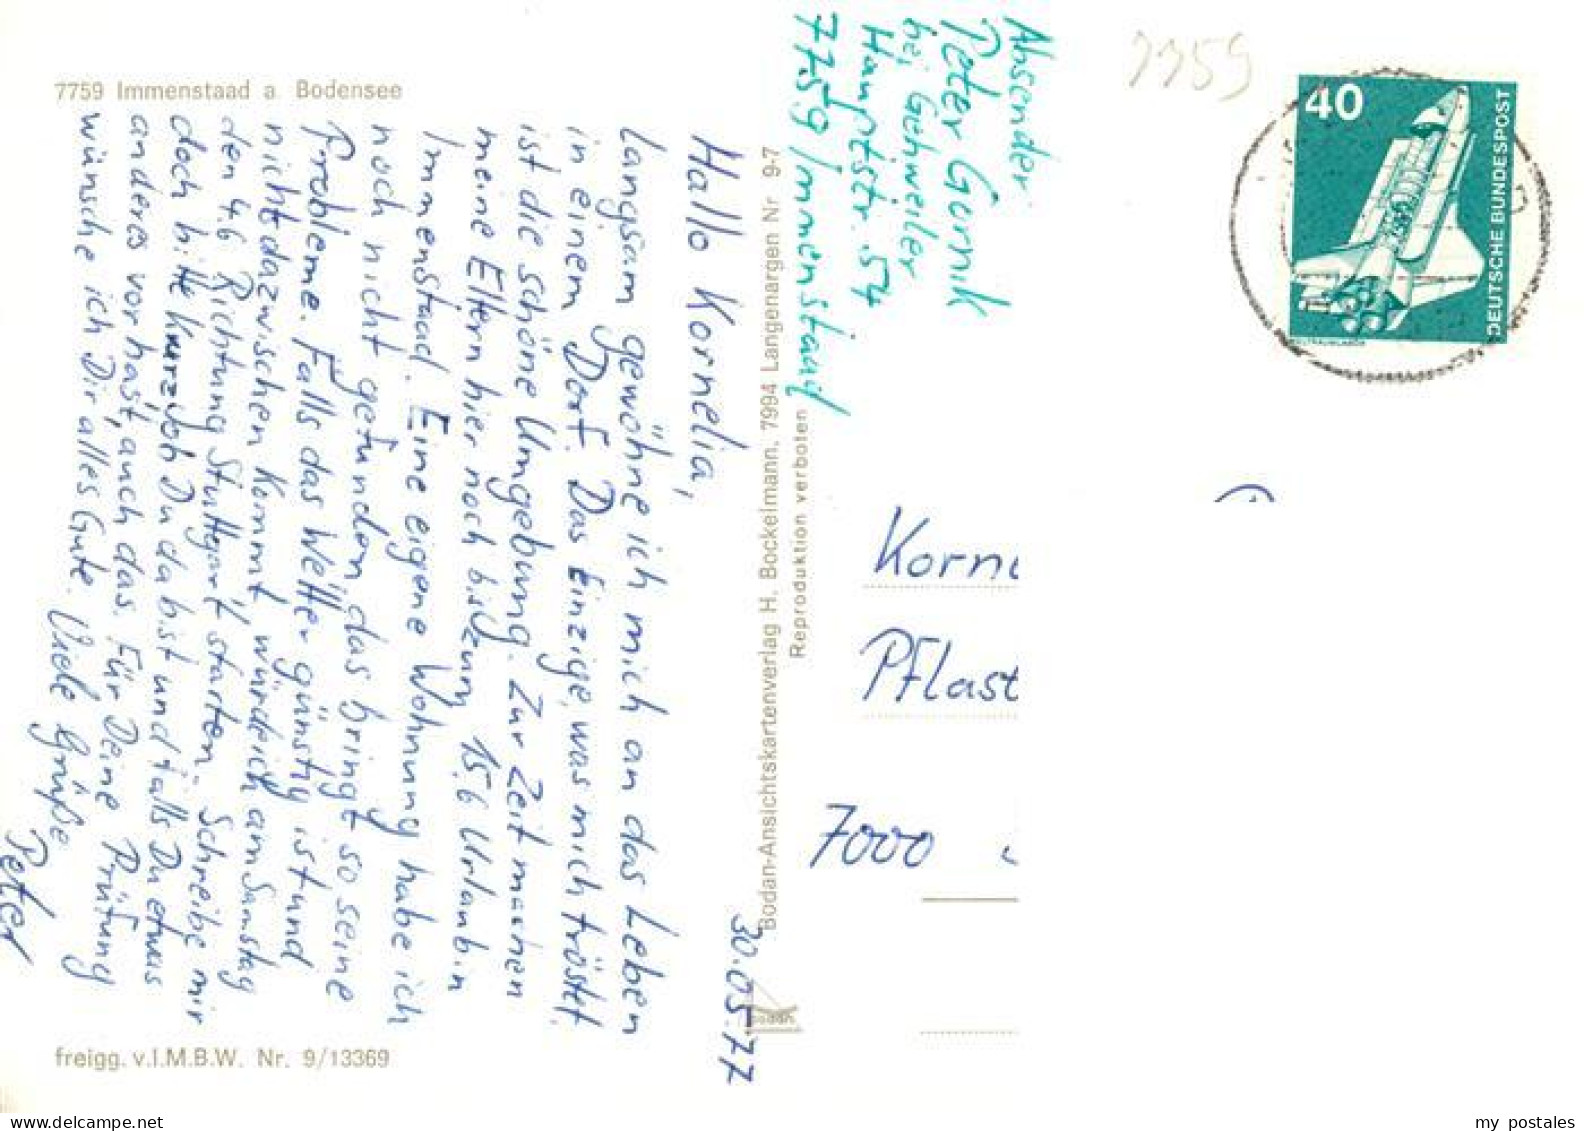 7759 Immenstaad a. Bodensee
30.05.77
Hallo Kornelia,
langsam gewöhne ich mich an das Leben
in einem Dorf. Das Einzige, was mich tröstet,
ist die schöne Umgebung. Zur Zeit machen
meine Eltern hier noch bis zum 15.6 Urlaub in
Immenstaad. Eine eigene Wohnung habe ich
noch nicht gefunden, das bringt so seine
Probleme. Falls das Wetter günstig ist und
nichts dazwischen kommt, würde ich am Samstag
den 4.6 Richtung Stuttgart starten. Schreibe mir
doch bitte kurz ob Du da bist und falls Du etwas
anderes vor hast, auch das. Für Deine Prüfung
wünsche ich Dir alles Gute. Viele Grüße
Peter
freigg. v. I.M.B.W. Nr. 9/13369
Bodan-Ansichtskartenverlag H. Bockelmann, 7994 Langenargen Nr 9-7
Reproduktion verboten
bodan
Absender
Peter Gornik
bei Gehweiler
Hauptstr. 54
7759 Immenstaad
7759
40
DEUTSCHE BUNDESPOST
Korne
Pflast
7000
my postales